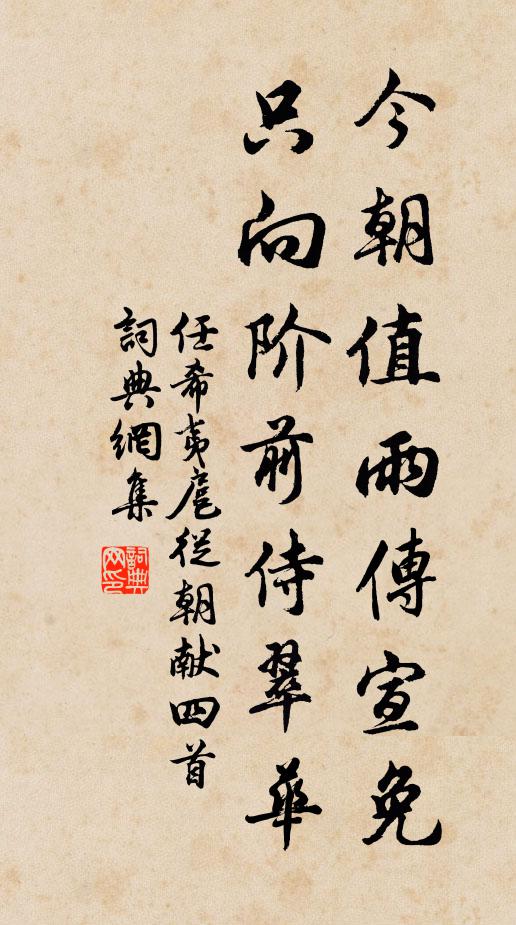 今朝值雨傳宣免
只向阶前侍翠華
任希夷扈從朝献四首
詞典網集
詞典网印